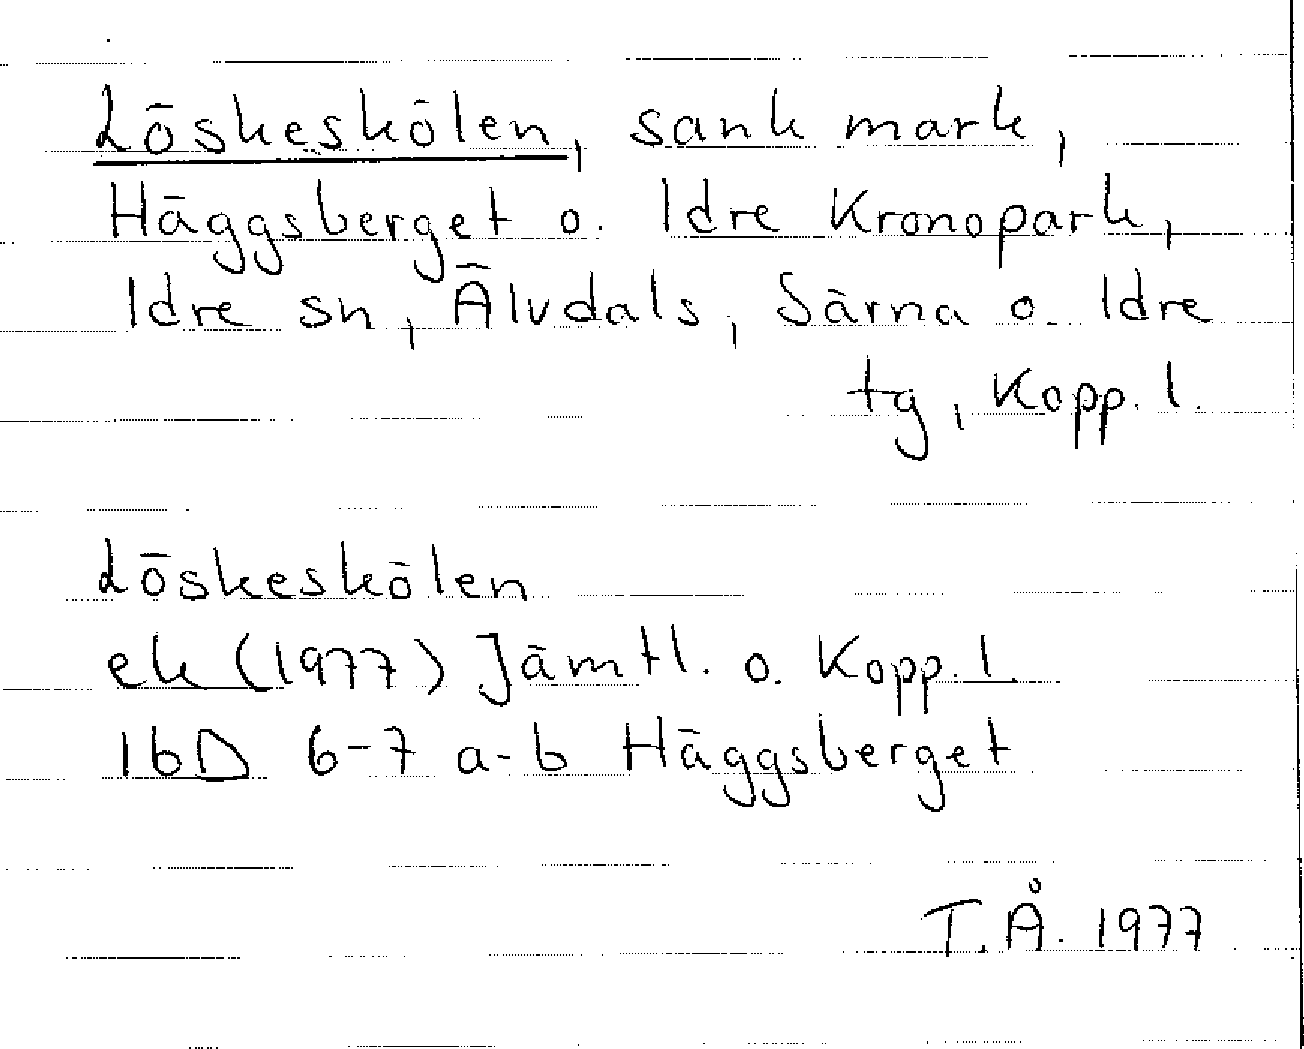 Löskeskölen, sank mark,
Häggsberget o. Idre Kronopark,
Idre sn, Älvdals, Särna o. Idre
tg, Kopp. l.
Löskeskölen
ek (1977) Jämtl. o. Kopp. l
16D 6-7 a-b Häggsberget
T.Å. 1977